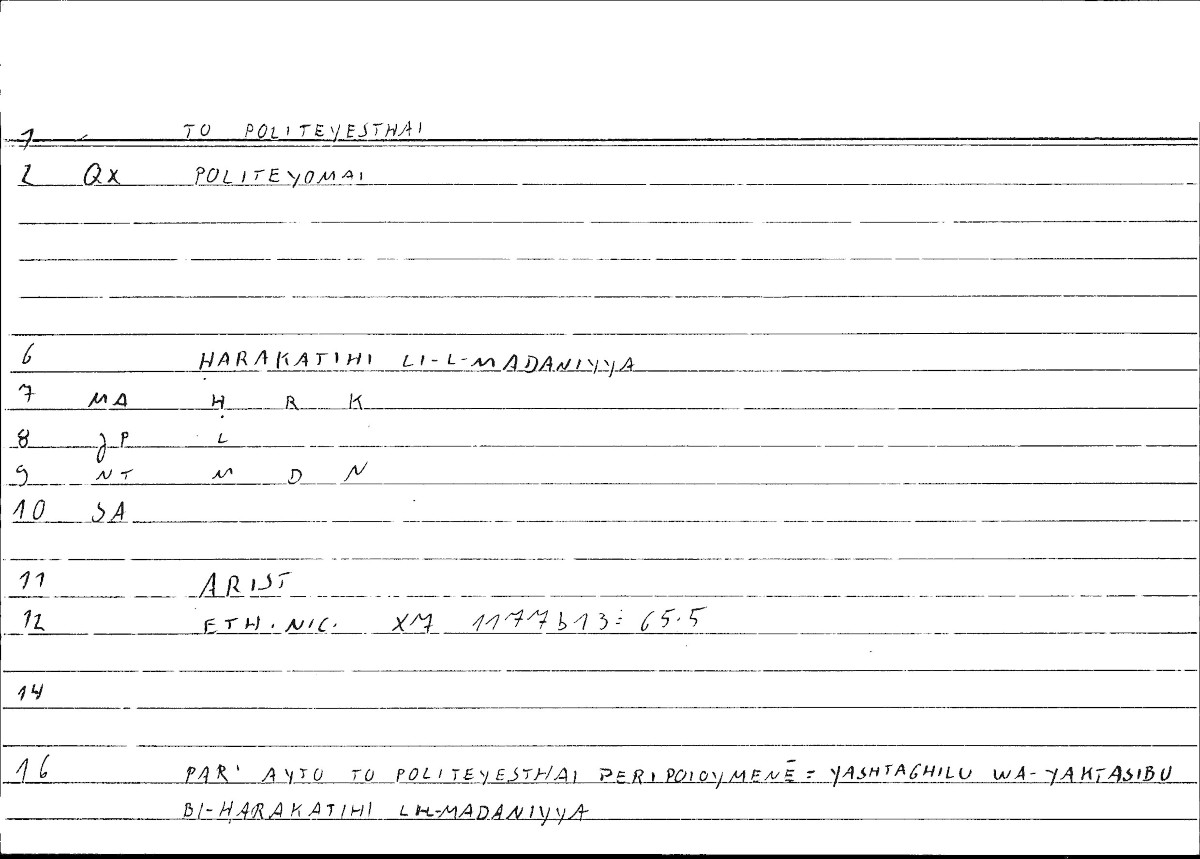 1 TO POLITEYESTHAI
2 QX POLITEYOMAI
6 ḤARAKATIHI LI-L-MADANIYYA
7 MA Ḥ R K
8 JP L
9 NT M D N
10 SA
11 ARIST
12 ETH. NIC. X7 1177b13: 65.5
14
16 PAR' AYTO TO POLITEYESTHAI PERIPOIOYMENĒ = YASHTAGHILU WA-YAKTASIBU
BI-ḤARAKATIHI LI-L-MADANIYYA